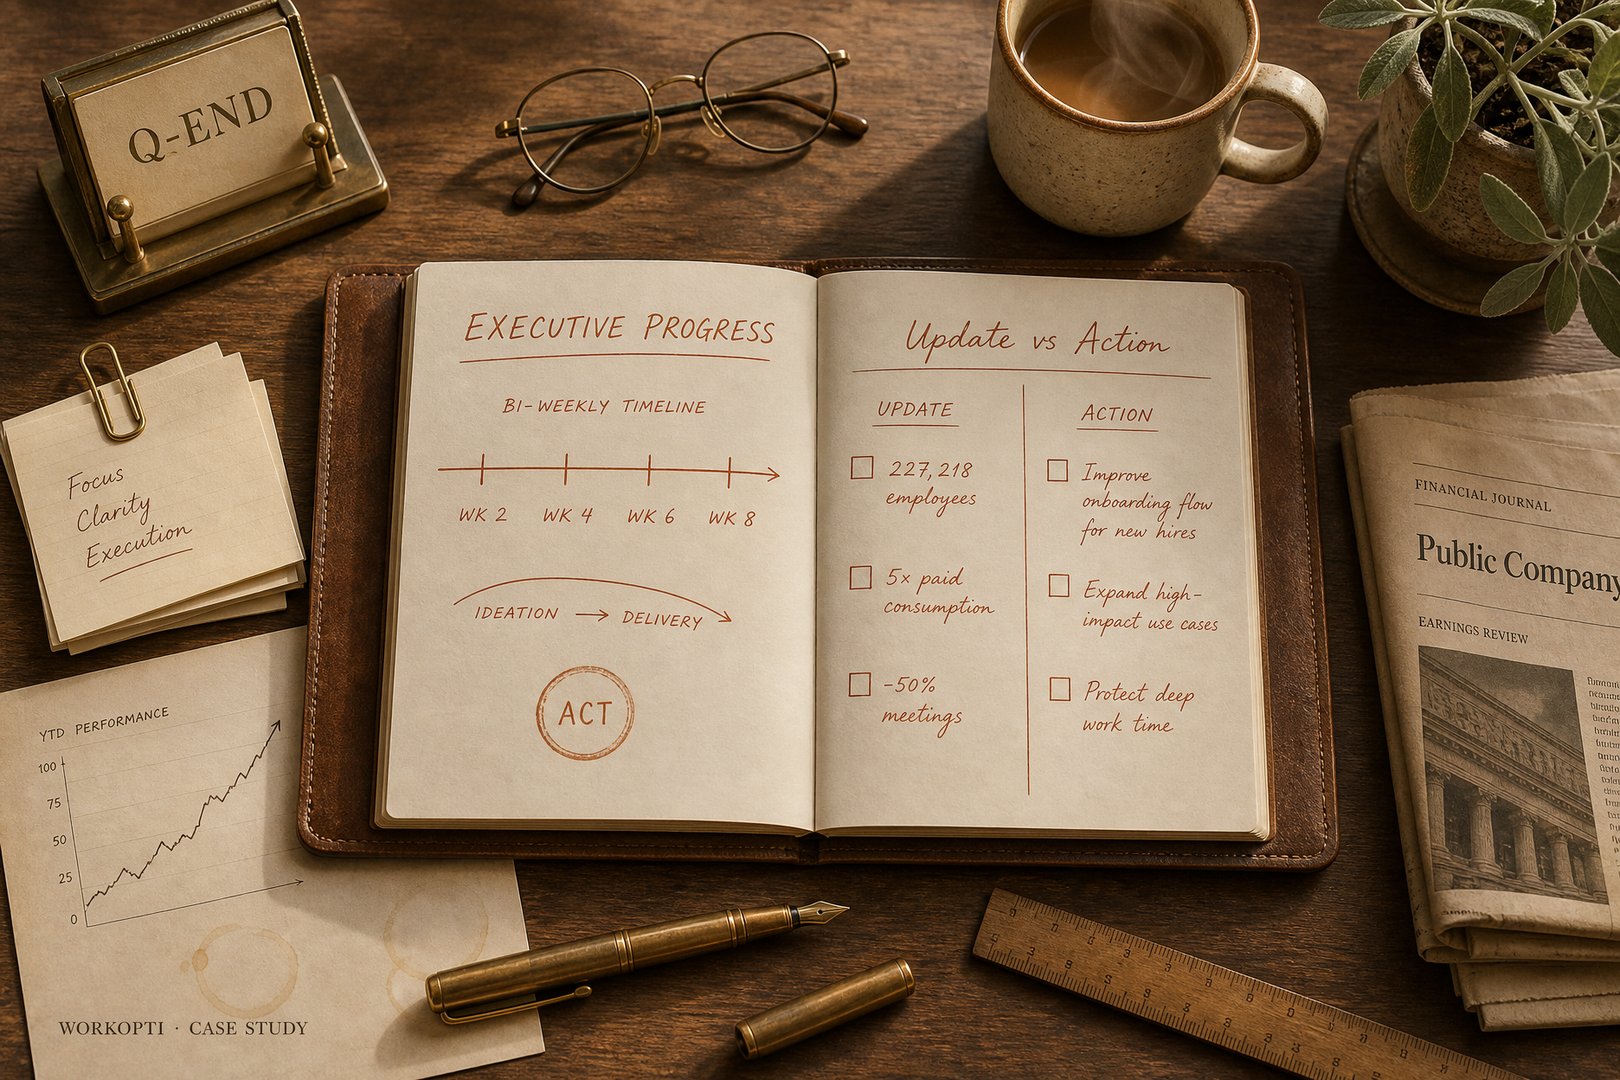 Q-END
Focus
Clarity
Execution
YTD PERFORMANCE
100
75
50
25
0
WORKOPTI · CASE STUDY
EXECUTIVE PROGRESS
BI-WEEKLY TIMELINE
WK 2 WK 4 WK 6 WK 8
IDEATION → DELIVERY
ACT
Update vs Action
UPDATE
227,218
employees
5x paid
consumption
-50%
meetings
ACTION
Improve
onboarding flow
for new hires
Expand high-
impact use cases
Protect deep
work time
FINANCIAL JOURNAL
Public Company
EARNINGS REVIEW